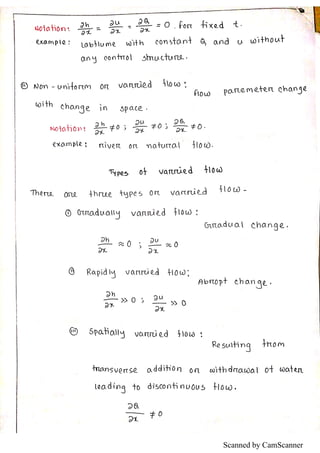 Notation: ∂h/∂x = ∂u/∂x = ∂Q/∂x = 0 . for fixed t.
example: labflume with constant Q and u without
any control structure.
Non-uniform or varried flow:
flow parameter change
with change in space.
Notation: ∂h/∂x ≠ 0 ; ∂u/∂x ≠ 0 ; ∂Q/∂x ≠ 0.
example: river or natural flow.
Types of varried flow
There are three types or varried flow -
i Gradually varried flow:
Gradual change.
∂h/∂x ≈ 0 ; ∂u/∂x ≈ 0
ii Rapidly varried flow:
Abropt change.
∂h/∂x >> 0 ; ∂u/∂x >> 0
iii Spatially varried flow:
Resulting from
transverse addition or withdrawal of water
leading to discontinuous flow.
∂Q/∂x ≠ 0
Scanned by CamScanner